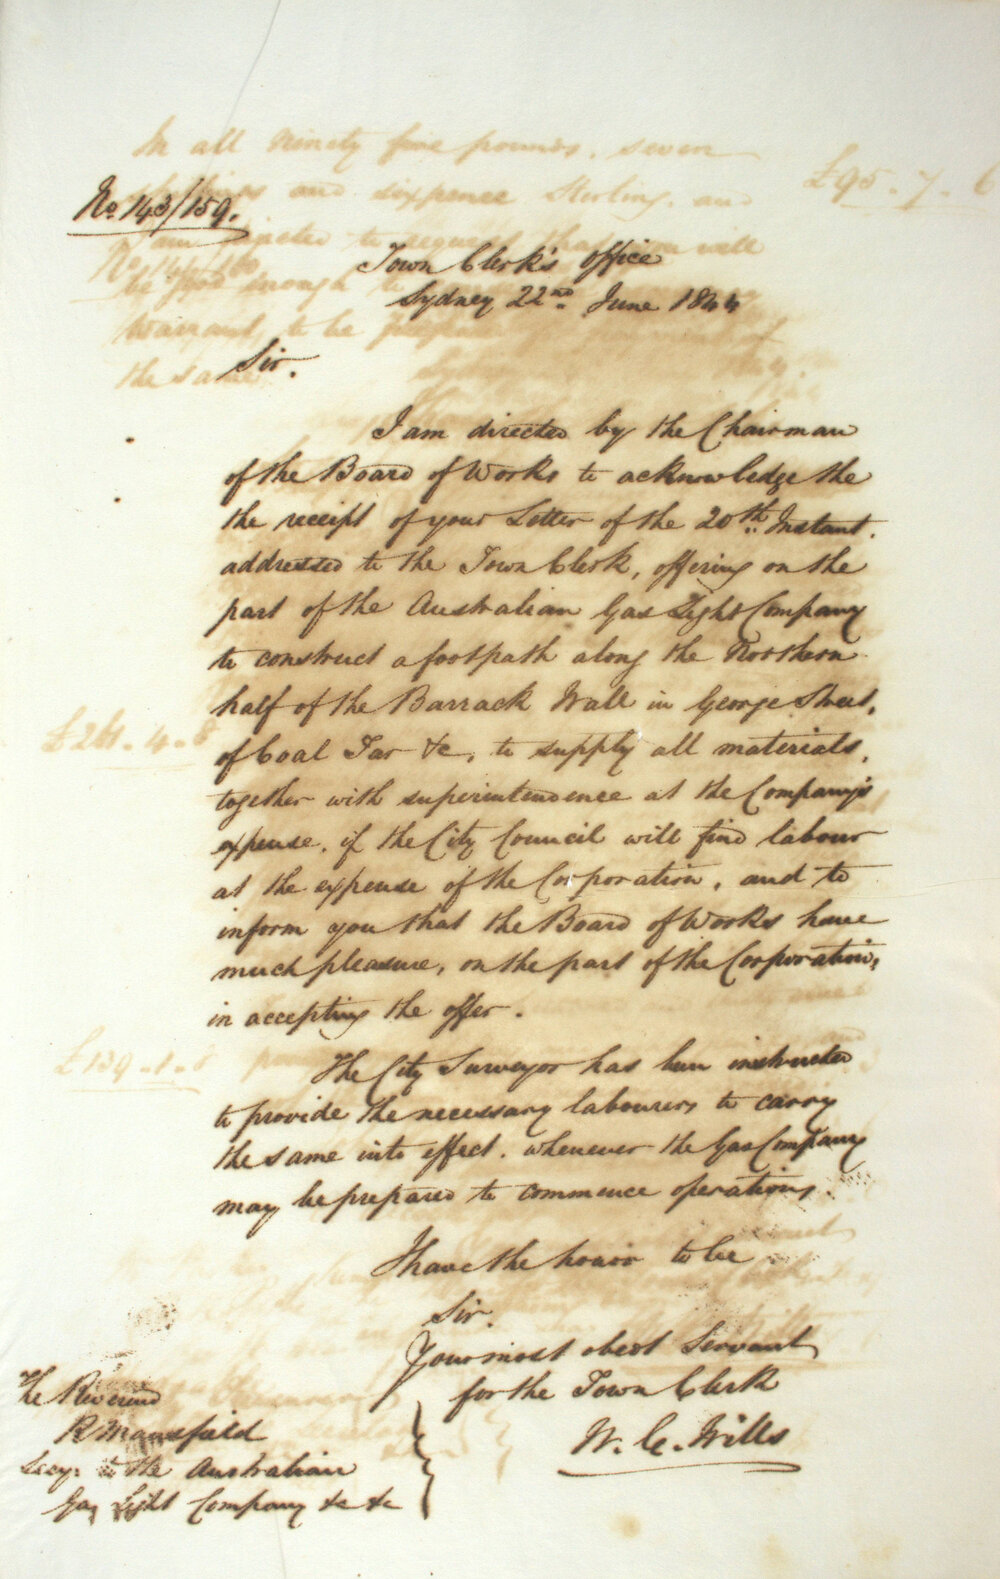 In all ninety five pounds, seven
£95.7.6
No. 143/159.
and sixpence Sterling, and
Town Clerk's Office
Sydney 22nd June 1844
Sir.
I am directed by the Chairman
of the Board of Works to acknowledge the
the receipt of your Letter of the 20th Instant.
addressed to the Town Clerk, offering on the
part of the Australian Gas Light Company
to construct a footpath along the Northern
half of the Barrack Wall in George Street,
of Coal Tar &c, to supply all materials,
together with superintendence at the Company's
expense, if the City Council will find labour
at the expense of the Corporation, and to
inform you that the Board of Works have
much pleasure, on the part of the Corporation,
in accepting the offer.
£139.1.
The City Surveyor has been instructed
to provide the necessary labourers to carry
the same into effect. whenever the Gas Company
may be prepared to commence operations.
I have the honor to be
Sir.
Your most obedt Servant
for the Town Clerk
W. C. Wills
The Reverend
R Mansfield
Secy. to the Australian
Gas Light Company &c &c